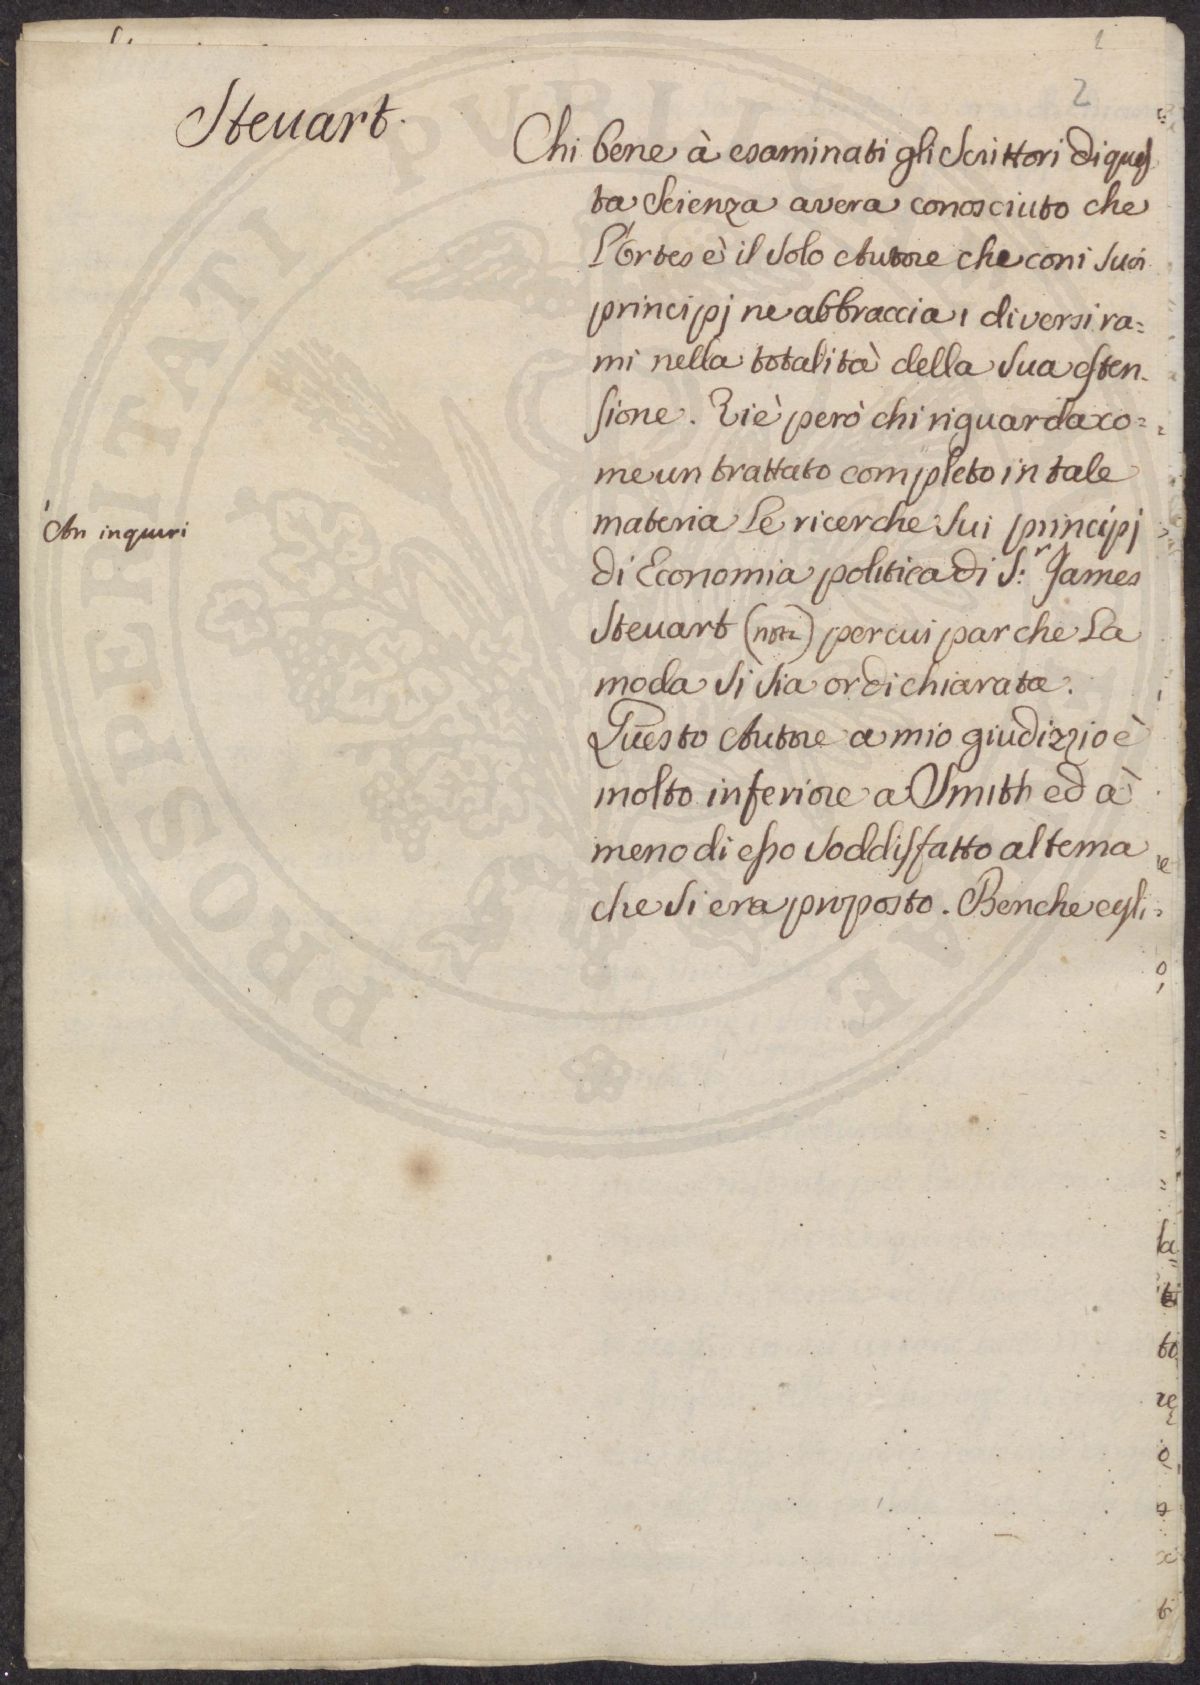 2
Steuart.
Chi bene à esaminati gli Scrittori di ques
ta Scienza avera conosciuto che
l'Ortes è il Solo Autore che con i suoi
principj ne abbraccia i diversi ra=
mi nella totalità della sua esten-
sione. Vi è però chi riguarda co=
me un trattato completo in tale
materia Le ricerche Sui principj
An inquiri
di Economia politica di S.r James
Steuart (nota) per cui par che La
moda si sia or dichiarata.
Questo Autore a mio giudizzio è
molto inferiore a Smith ed à
meno di esso soddisfatto al tema
che si era proposto. Benche egli
PROSPERITATI PUBLICAE